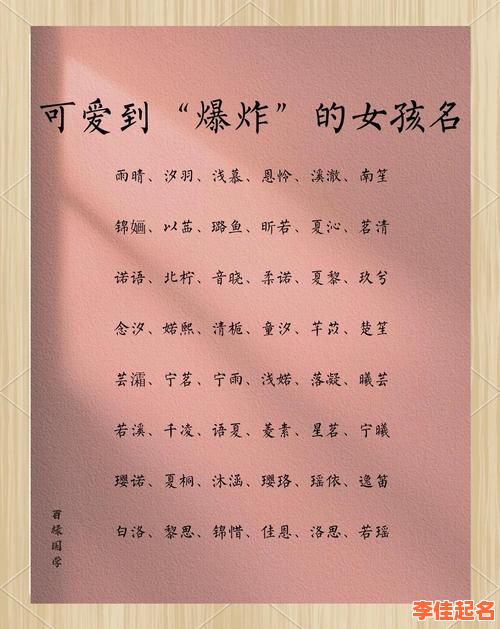 可爱到“爆炸”的女孩名
雨晴、汐羽、浅慕、恩怜、溪澈、南笙
锦婳、以茜、璐鱼、昕若、夏沁、茗清
诺语、北柠、音晓、柔诺、夏黎、玖兮
念汐、婼熙、清栀、童汐、芊苡、楚笙
芸灀、宁茗、宁雨、浅婼、落凝、曦芸
若溪、千凌、语夏、菱素、星茗、宁曦
璎诺、夏桐、沐涵、璎珞、瑶依、逸笛
白洛、黎思、锦惜、佳恩、洛思、若瑶
百缘国学
李佳起名